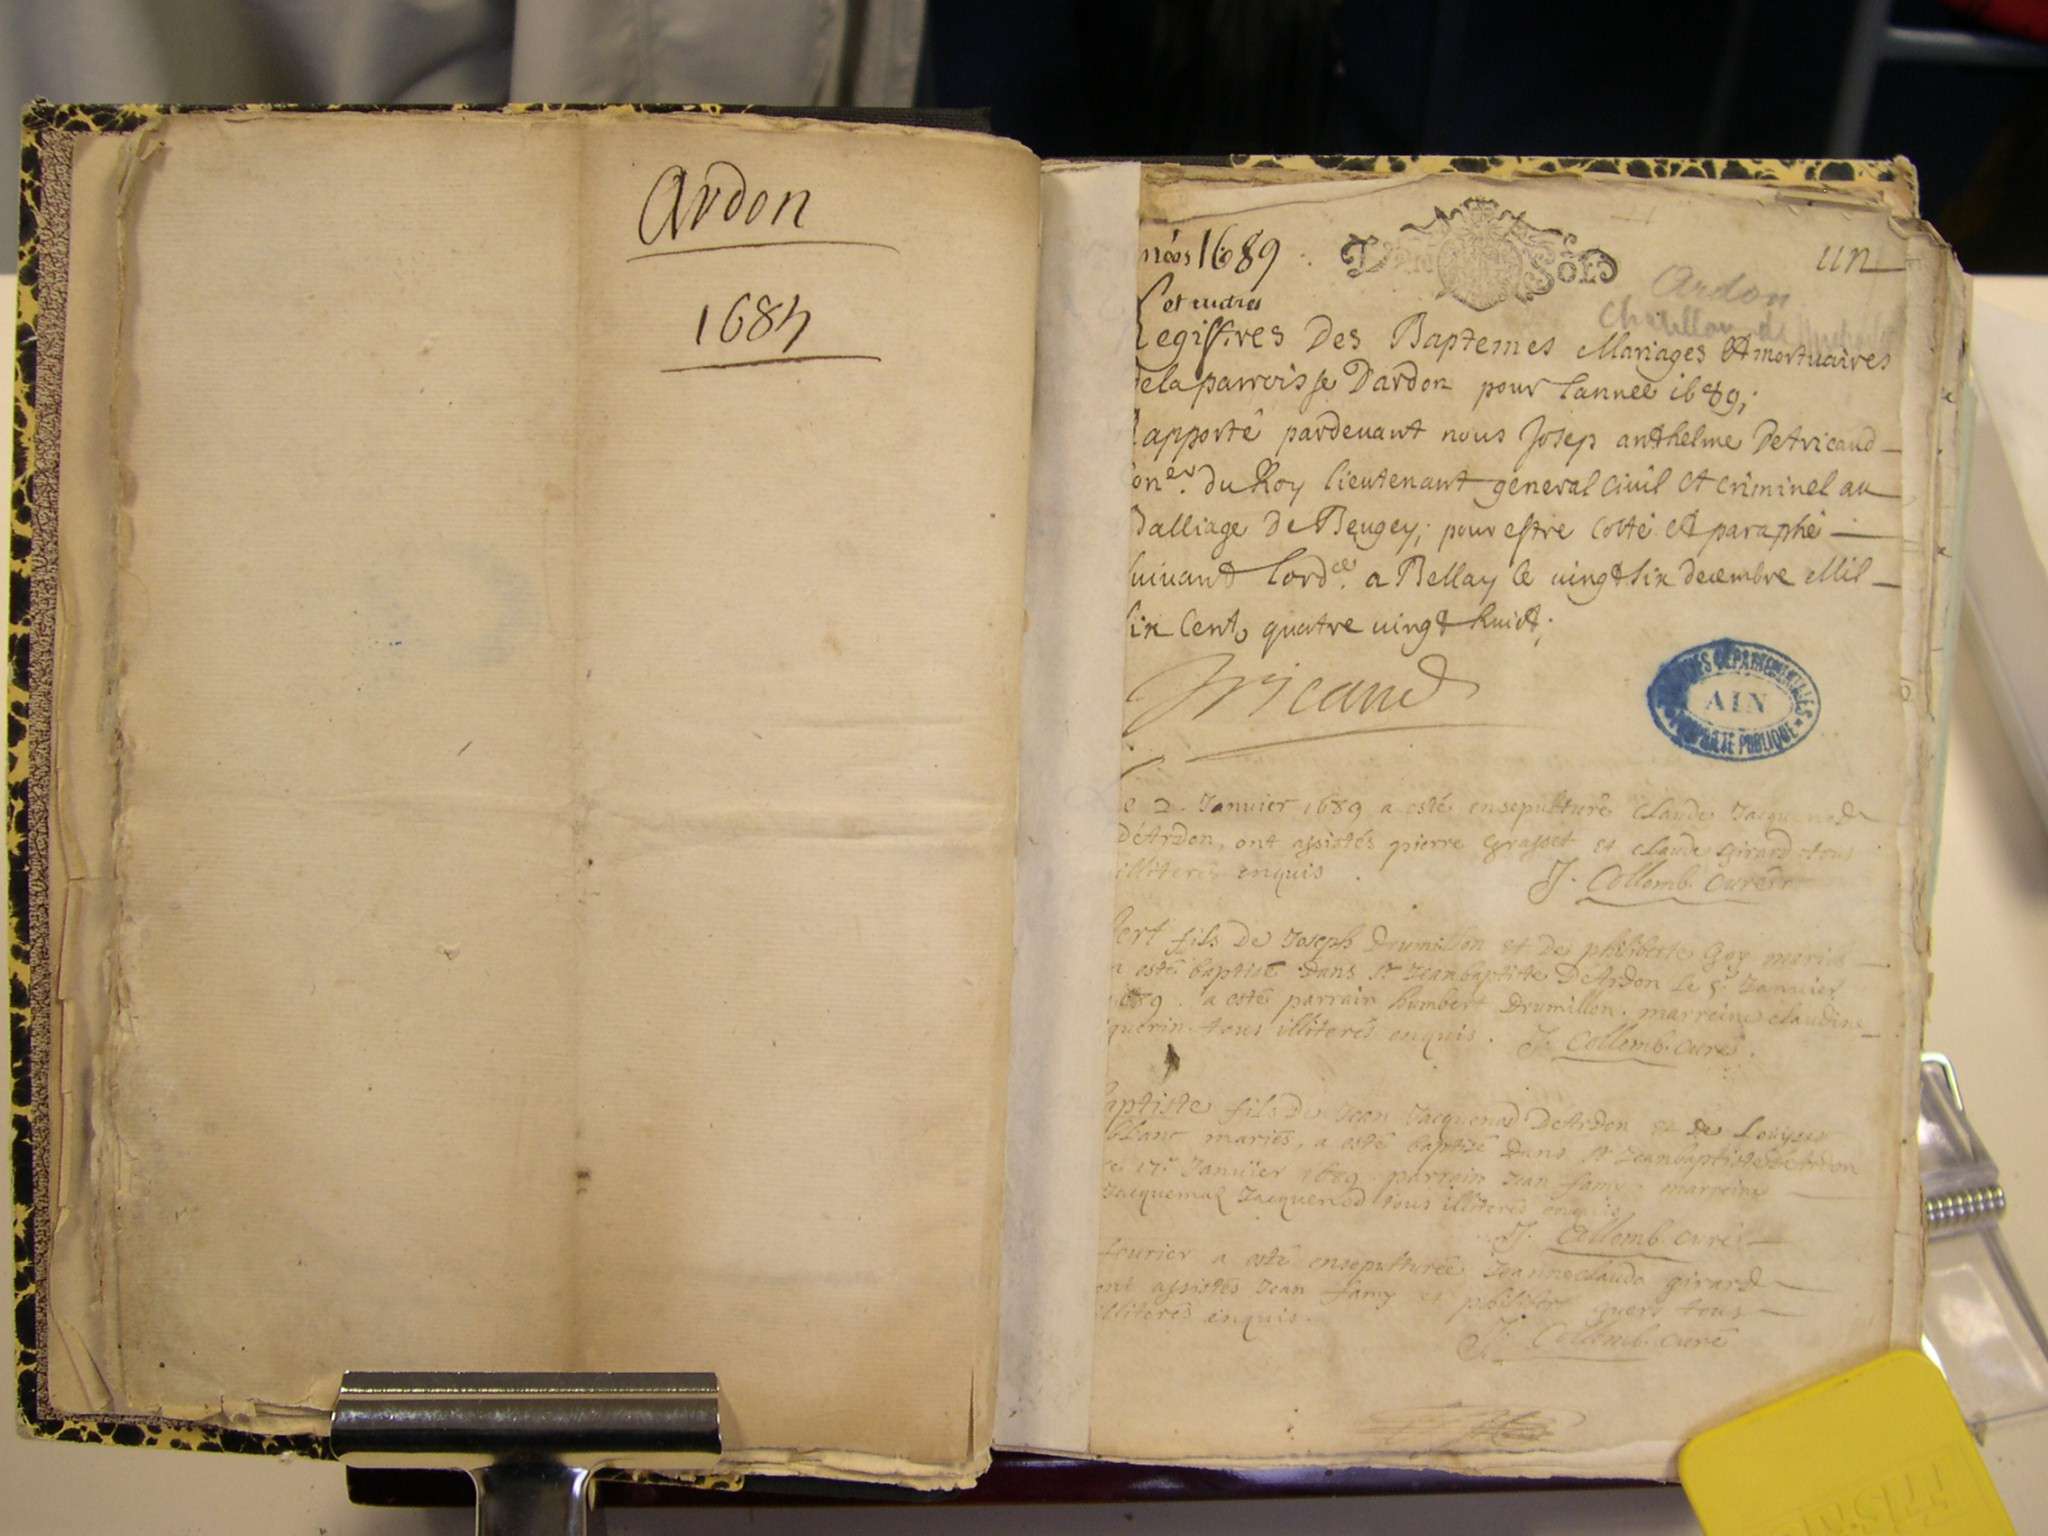 Ardon
1684
nées 1689
DEUX SOLS
un
et autres
Ardon
Chatillon de
egistres Des Baptemes Mariages Et mortuaires
dela parroisse Dardon pour Lannee 1689;
apporté pardevant nous Josep anthelme Detricaud
oner. du Roy lieutenant general civil et criminel au
Balliage De Beugey; pour estre cotté et paraphé
suivant Lordce. a Bellay le vingt six decembre Mil
six Cents quatre vingt huict;
Tricaud
ARCHIVES DEPARTEMENTALES
AIN
PROPRIÉTÉ PUBLIQUE
e 2. Januier 1689 a esté ensepulturé Claude Jacquenod
DeArdon, ont assistés pierre grasset et claude girard tous
illiterés enquis
J. Collomb. curé
bert fils De Joseph Drumillon et De philiberte Goy mariés
a esté baptisé Dans st Jeanbaptiste DeArdon le 5e Januier
1689. a esté parrain humbert Drumillon. marreine claudine
guerin tous illiterés enquis. J. Collomb. curé.
aptiste fils De Jean Jacquenod DeArdon et de Louyse
blanc mariés, a esté baptizé Dans st Jeanbaptiste DeArdon
ce 17e Januier 1689. parrain Jean famy. marreine
Jacquemaz Jacquenod tous illiterés enquis
J. Collomb. curé
feurier a esté ensepulturée Jeanneclauda girard
ont assistés Jean famy et philibert guers tous
illiterés enquis.
J. Collomb. curé